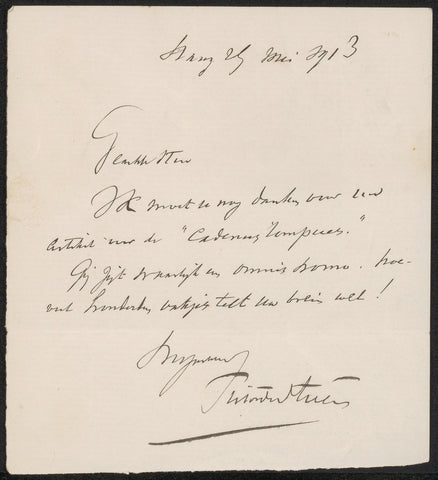 Haag 29 Mei 1913
Geachte Heer
Ik moet u nog danken voor uw
artikel over de "Cadences rompues."
Gij zijt waarlijk een omnis homo. Hoe-
veel honderden vakjes telt uw brein wel!